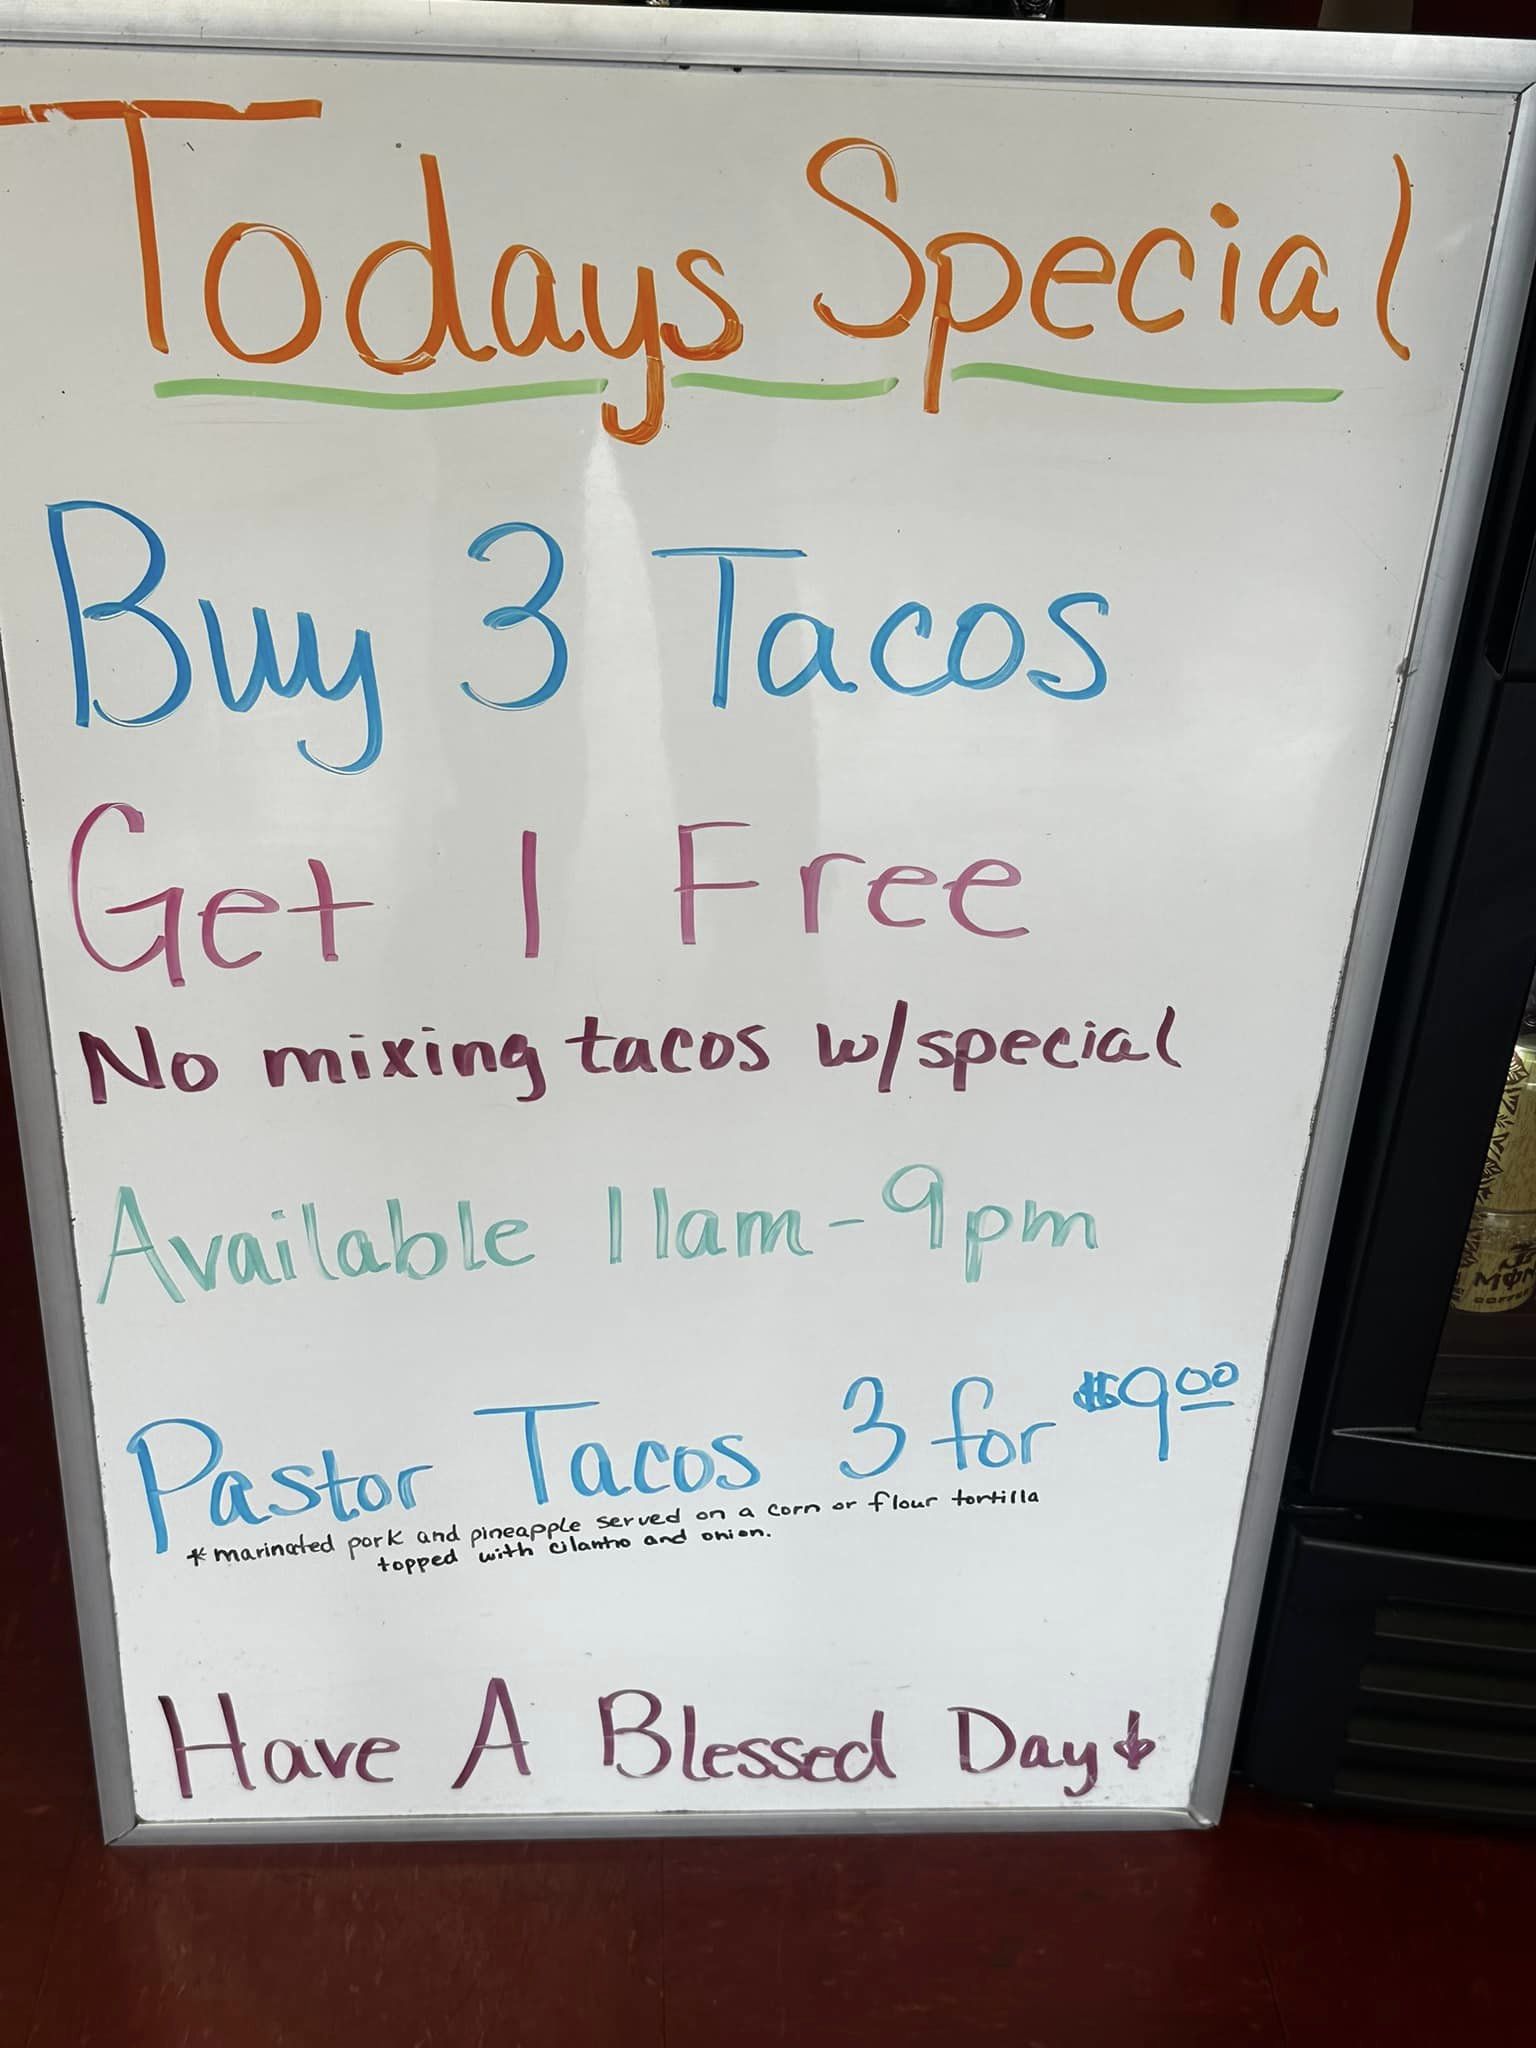 Todays Special
Buy 3 Tacos
Get 1 Free
No mixing tacos w/special
Available 11am-9pm
Pastor Tacos 3 for $9.00
*marinated pork and pineapple served on a corn or flour tortilla
topped with cilantro and onion.
Have A Blessed Day